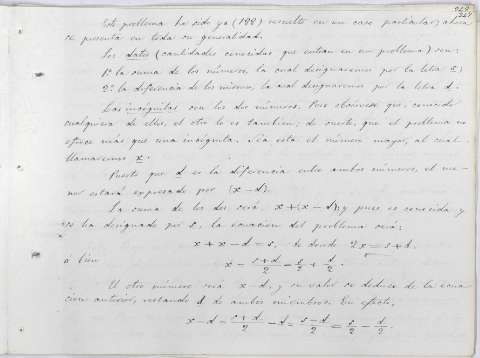 249
Este problema ha sido ya (188) resuelto en un caso particular; ahora
se presenta en toda su generalidad.
Los datos (cantidades conocidas que entran en un problema) son:
1º la suma de los números, la cual designaremos por la letra s;
2º la diferencia de los mismos, la cual designaremos por la letra d.
Las incógnitas son los dos números. Pero obsérvese que, conocido
cualquiera de ellos, el otro lo es también; de suerte, que el problema no
ofrece más que una incógnita. Sea esta el número mayor, al cual
llamaremos x.
Puesto que d es la diferencia entre ambos números, el me-
nor estará expresado por (x - d).
La suma de los dos será x + (x - d); y pues es conocida y
se ha designado por s, la ecuación del problema será:
x + x - d = s, de donde 2x = s + d.
ó bien
x = s+d/2 = s/2 + d/2.
El otro número será x - d, y su valor se deduce de la ecua-
ción anterior, restando d de ambos miembros. En efecto,
x - d = s+d/2 - d = s-d/2 = s/2 - d/2.